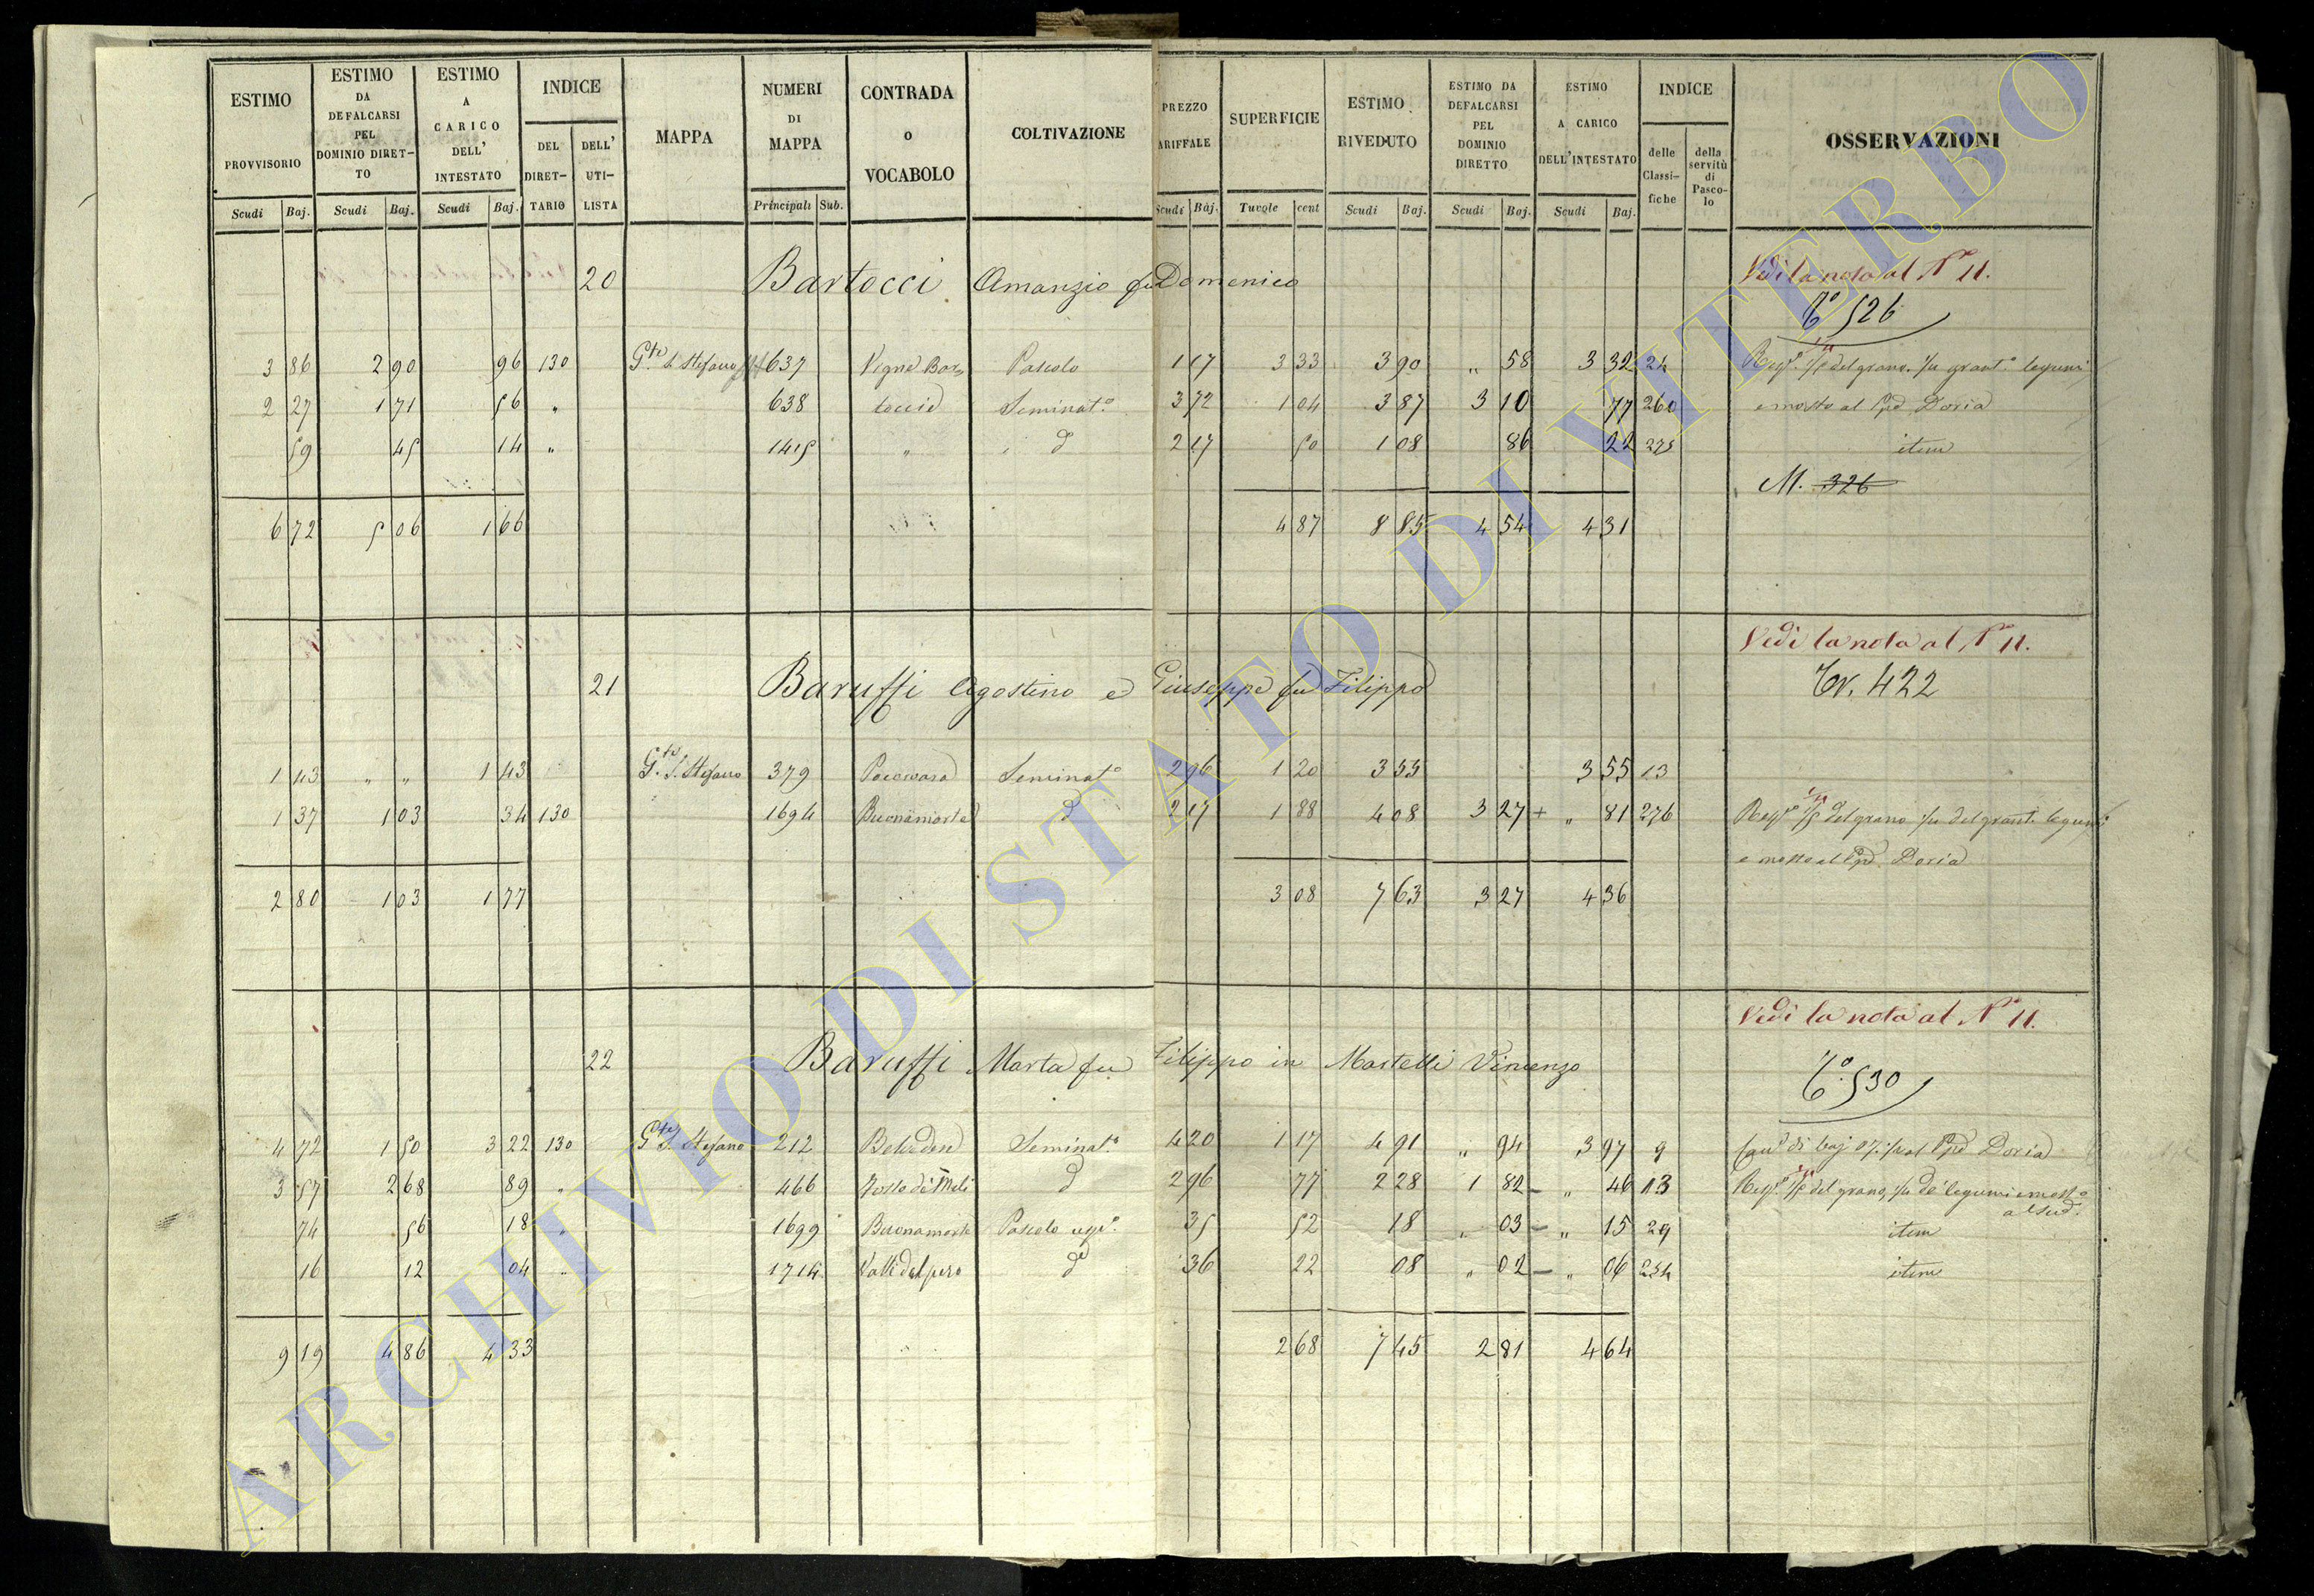 ESTIMO PROVVISORIO | ESTIMO DA DEFALCARSI PEL DOMINIO DIRET-TO | ESTIMO A CARICO DELL' INTESTATO | INDICE | MAPPA | NUMERI DI MAPPA | CONTRADA O VOCABOLO | COLTIVAZIONE | PREZZO ARIFFALE | SUPERFICIE | ESTIMO RIVEDUTO | ESTIMO DA DEFALCARSI PEL DOMINIO DIRETTO | ESTIMO A CARICO DELL'INTESTATO | INDICE | OSSERVAZIONI
DEL DIRET-TARIO | DELL' UTI-LISTA | delle Classi-fiche | della servitù di Pasco-lo
Scudi Baj. | Scudi Baj. | Scudi Baj. | Principali Sub. | Scudi Baj. | Tavole cent | Scudi Baj. | Scudi Baj. | Scudi Baj.
Vedi la nota al N° 11.
20 Bartocci Amanzio fu Domenico
T° 526
3 86 | 2 90 | 96 | 130 | Gte S. Stefano | 637 | Vigne Bar | Pascolo | 1 17 | 3 33 | 3 90 | „ 58 | 3 32 | 24 | Rispa 1/5 del grano 1/4 grant° legumi
2 27 | 1 71 | 56 | „ | 638 | toccie | Seminat° | 3 72 | 1 04 | 3 87 | 3 10 | 77 | 260 | e mosto al Ppe Doria
59 | 45 | 14 | „ | 1415 | „ | d° | 2 17 | 50 | 1 08 | 86 | 22 | 275 | item
M. 326
6 72 | 5 06 | 1 66 | 4 87 | 8 85 | 4 54 | 4 31
Vedi la nota al N° 11.
21 Baruffi Agostino e Giuseppe fu Filippo
Tr. 422
1 43 | „ „ | 1 43 | Gte S. Stefano | 379 | Seminat° | 2 96 | 1 20 | 3 55 | 3 55 | 13
1 37 | 1 03 | 34 | 130 | 1694 | Buonamorte | d° | 2 17 | 1 88 | 4 08 | 3 27 + | „ 81 | 276 | Rispa 1/5 del grano 1/4 del grant. legumi
e mosto al Ppe Doria
2 80 | 1 03 | 1 77 | 3 08 | 7 63 | 3 27 | 4 36
Vedi la nota al N° 11.
22 Baruffi Marta fu Filippo in Martelli Vincenzo
T° 530
4 72 | 1 50 | 3 22 | 130 | Gte S. Stefano | 212 | Belvedere | Seminat° | 4 20 | 1 17 | 4 91 | „ 94 | 3 97 | 9 | al Ppe Doria
3 57 | 2 68 | 89 | „ | 466 | Fosso de Meli | d° | 2 96 | 77 | 2 28 | 1 82 – | „ 46 | 13 | Rispa 1/5 del grano, 1/4 de' legumi e mosto
al sud°
74 | 56 | 18 | „ | 1699 | Buonamorte | Pascolo | 35 | 52 | 18 | „ 03 – | „ 15 | 29 | item
16 | 12 | 04 | „ | 1714 | Valle del pero | d° | 36 | 22 | 08 | „ 02 – | „ 06 | 254 | item
9 19 | 4 86 | 4 33 | 2 68 | 7 45 | 2 81 | 4 64
ARCHIVIO DI STATO DI VITERBO